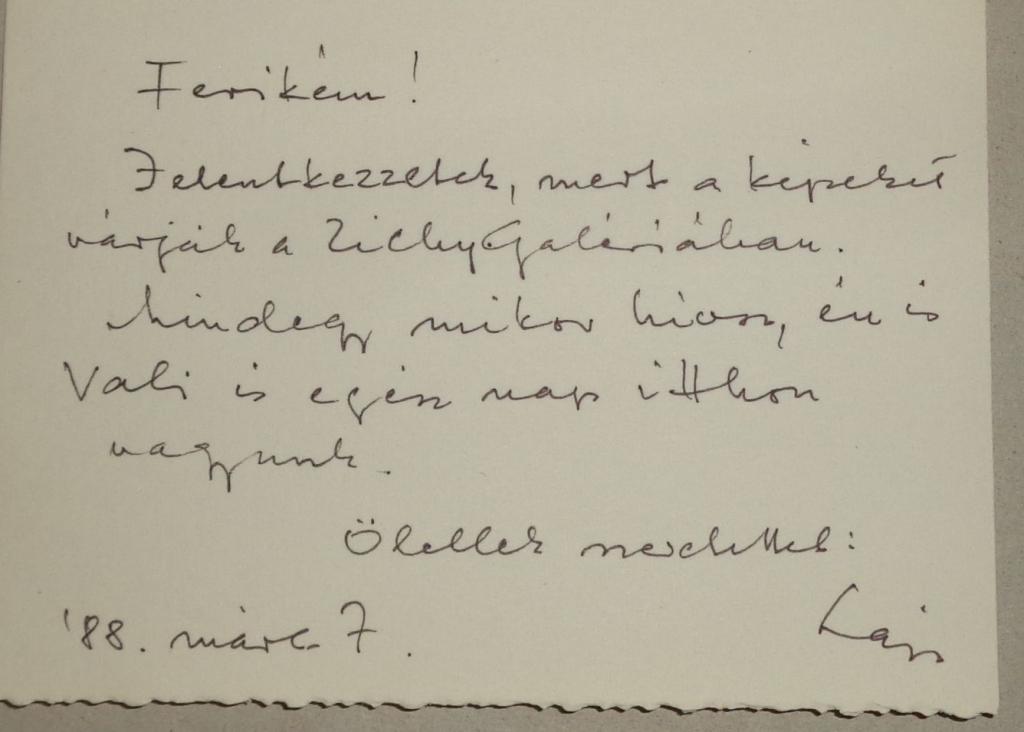 Ferikém!
Jelentkezzetek, mert a képeket
várják a Zichy Galériában.
Mindegy mikor hívsz, én is
Vali is egész nap itthon
vagyunk.
Ölellek szeretettel:
'88. márc. 7. Lajos